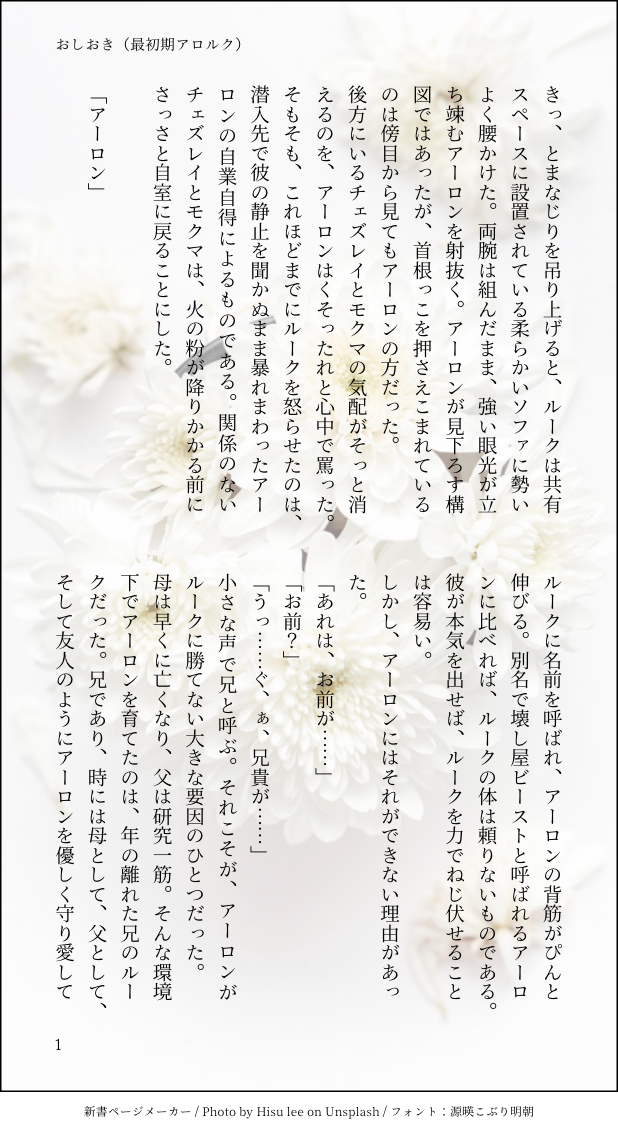 おしおき（最初期アロルク）
きっ、とまなじりを吊り上げると、ルークは共有
スペースに設置されている柔らかいソファに勢い
よく腰かけた。両腕は組んだまま、強い眼光が立
ち竦むアーロンを射抜く。アーロンが見下ろす構
図ではあったが、首根っこを押さえこまれている
のは傍目から見てもアーロンの方だった。
後方にいるチェズレイとモクマの気配がそっと消
えるのを、アーロンはくそったれと心中で罵った。
そもそも、これほどまでにルークを怒らせたのは、
潜入先で彼の静止を聞かぬまま暴れまわったアー
ロンの自業自得によるものである。関係のない
チェズレイとモクマは、火の粉が降りかかる前に
さっさと自室に戻ることにした。
「アーロン」
ルークに名前を呼ばれ、アーロンの背筋がぴんと
伸びる。別名で壊し屋ビーストと呼ばれるアーロ
ンに比べれば、ルークの体は頼りないものである。
彼が本気を出せば、ルークを力でねじ伏せること
は容易い。
しかし、アーロンにはそれができない理由があっ
た。
「あれは、お前が……」
「お前？」
「うっ……ぐ、ぁ、兄貴が……」
小さな声で兄と呼ぶ。それこそが、アーロンが
ルークに勝てない大きな要因のひとつだった。
母は早くに亡くなり、父は研究一筋。そんな環境
下でアーロンを育てたのは、年の離れた兄のルー
クだった。兄であり、時には母として、父として、
そして友人のようにアーロンを優しく守り愛して
1
新書ページメーカー / Photo by Hisu lee on Unsplash / フォント：源暎こぶり明朝